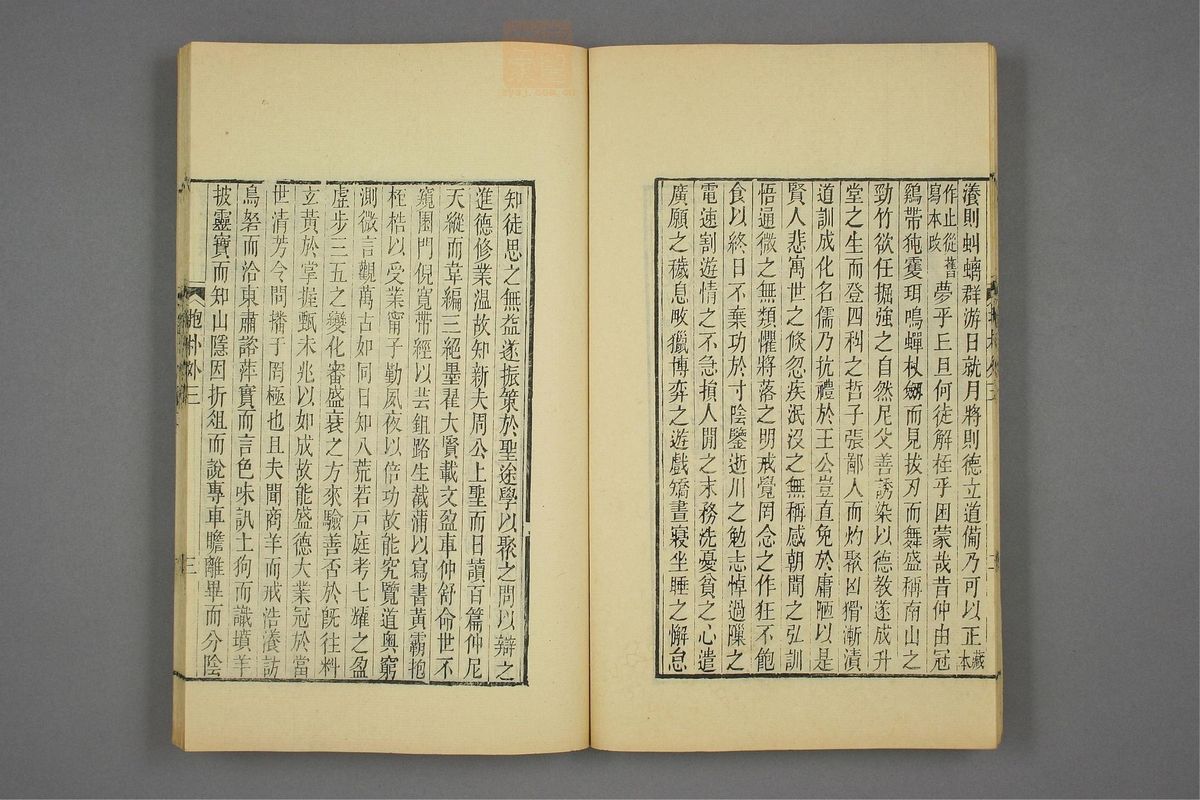 瀁則蚪螭群游日就月將則德立道備乃可以正藏本
作止從舊寫本改夢乎丘旦何徒解桎乎困蒙哉昔仲由冠
鷄帶㹠霙珥鳴蟬杖劒而見拔刃而舞盛稱南山之
勁竹欲任掘強之自然尼父善誘染以德教遂成升
堂之生而登四科之哲子張鄙人而灼聚凶猾漸漬
道訓成化名儒乃抗禮於王公豈直免於庸陋以是
賢人悲寓世之倏忽疾泯沒之無稱感朝聞之弘訓
悟通微之無類懼將落之明戒覺罔念之作狂不飽
食以終日不棄功於寸陰鑒逝川之勉志悼過隟之
電速割遊情之不急損人閒之末務洗憂貧之心遣
廣願之穢息畋獵博弈之遊戲矯晝寢坐睡之懈怠
知徒思之無益遂振策於聖途學以聚之問以辯之
進德修業温故知新夫周公上聖而日讀百篇仲尼
天縱而韋編三絕墨翟大賢載文盈車仲舒命世不
窺園門倪寬帶經以芸鉏路生截蒲以寫書黃霸抱
桎梏以受業甯子勤夙夜以倍功故能究覽道奧窮
測微言觀萬古如同日知八荒若戸庭考七耀之盈
虛步三五之變化審盛衰之方來驗善否於旣往料
玄黃於掌握甄未兆以如成故能盛德大業冠於當
世清芳令問播于罔極也且夫聞商羊而戒浩瀁訪
鳥砮而洽東肅諮萍實而言色味訊土狗而識墳羊
披靈寶而知山隱因折俎而說專車瞻離畢而分陰
抱朴外三
三